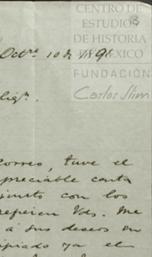 CENTRO DE
ESTUDIOS
DE HISTORIA
DE MÉXICO
FUNDACIÓN
Carlos Slim
Octre. 10 de 1891
correo, tuve el
preciable carta
junto con los
Vds. me
á sus deseos en
piado ya el